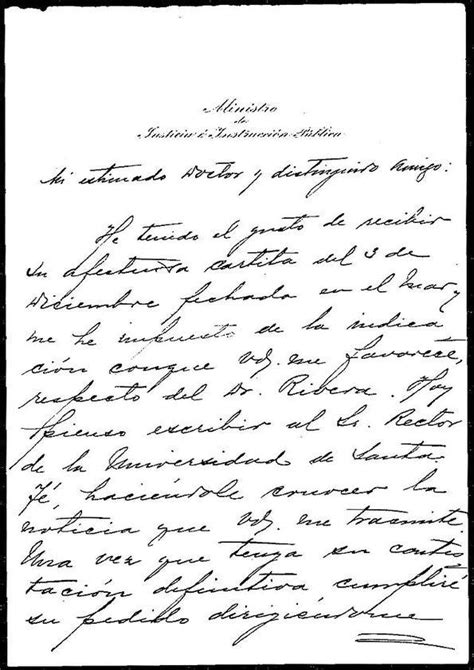 Ministro
de
Justicia é Instrucción Pública
Mi estimado Doctor y distinguido amigo:
He tenido el gusto de recibir
su afectuosa cartita del 3 de
Diciembre fechada en el mar y
me he impuesto de la indica
ción conque vd. me favorece,
respecto del Dr. Ribera. Hoy
pienso escribir al Sr. Rector
de la Universidad de Santa
Fé, haciéndole conocer la
noticia que vd. me trasmite
Una vez que tenga su contes
tación definitiva cumpliré
su pedido dirigiéndome